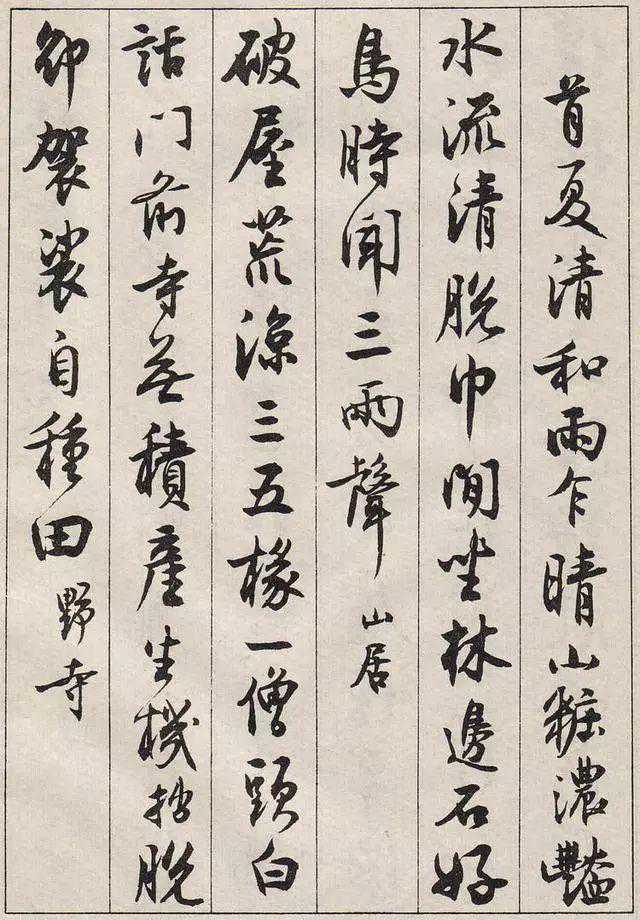 首夏清和雨乍晴山粧濃豔
水流清脫巾閒坐林邊石好
鳥時聞三兩聲山居
破屋荒涼三五椽一僧頭白
話門前寺無積產生機拙脫
卻袈裟自種田野寺